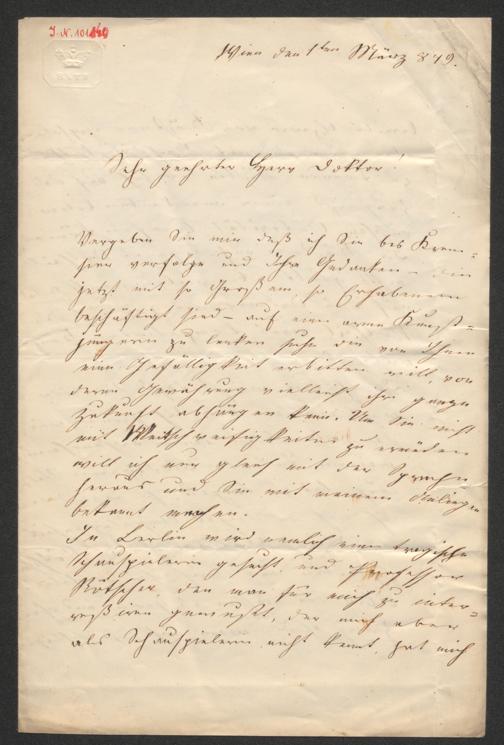 J. N. 101
BATH
Wien den 1ten März 849.
Sehr geehrter Herr Doktor!
Vergeben Sie mir daß ich Sie bis Krem=
sier verfolge und Ihre Gedanken – die
jetzt mit so Großem, so Erhabenem
beschäftigt sind – auf eine arme Kunst=
jüngerin zu lenken suche die von Ihnen
eine Gefälligkeit erbitten will, von
deren Gewährung vielleicht ihre ganze
Zukunft abhängen kann. Um Sie nicht
mit Weitschweifigkeiten zu ermüden
will ich nun gleich mit der Sprache
heraus und Sie mit meinem Anliegen
bekannt machen.
In Berlin wird nemlich eine tragische
Schauspielerin gesucht, und Professor
Rötscher, den man für mich zu inter=
eßiren gewußt, der mich aber
als Schauspielerin nicht kennt, hat mich